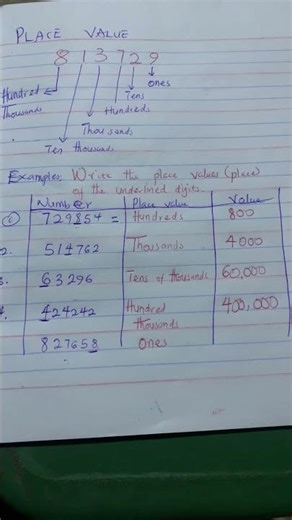 PLACE VALUE
8 1 3 7 2 9
Ones
Tens
Hundreds
Hundred
Thousands
Thousands
Ten thousands
Examples: Write the place values (place)
of the underlined digits.
Number Place value Value
① 729854 = Hundreds 800
2. 514762 Thousands 4000
3. 63296 Tens of thousands 60,000
4. 424242 Hundred 400,000
thousands
827658 Ones